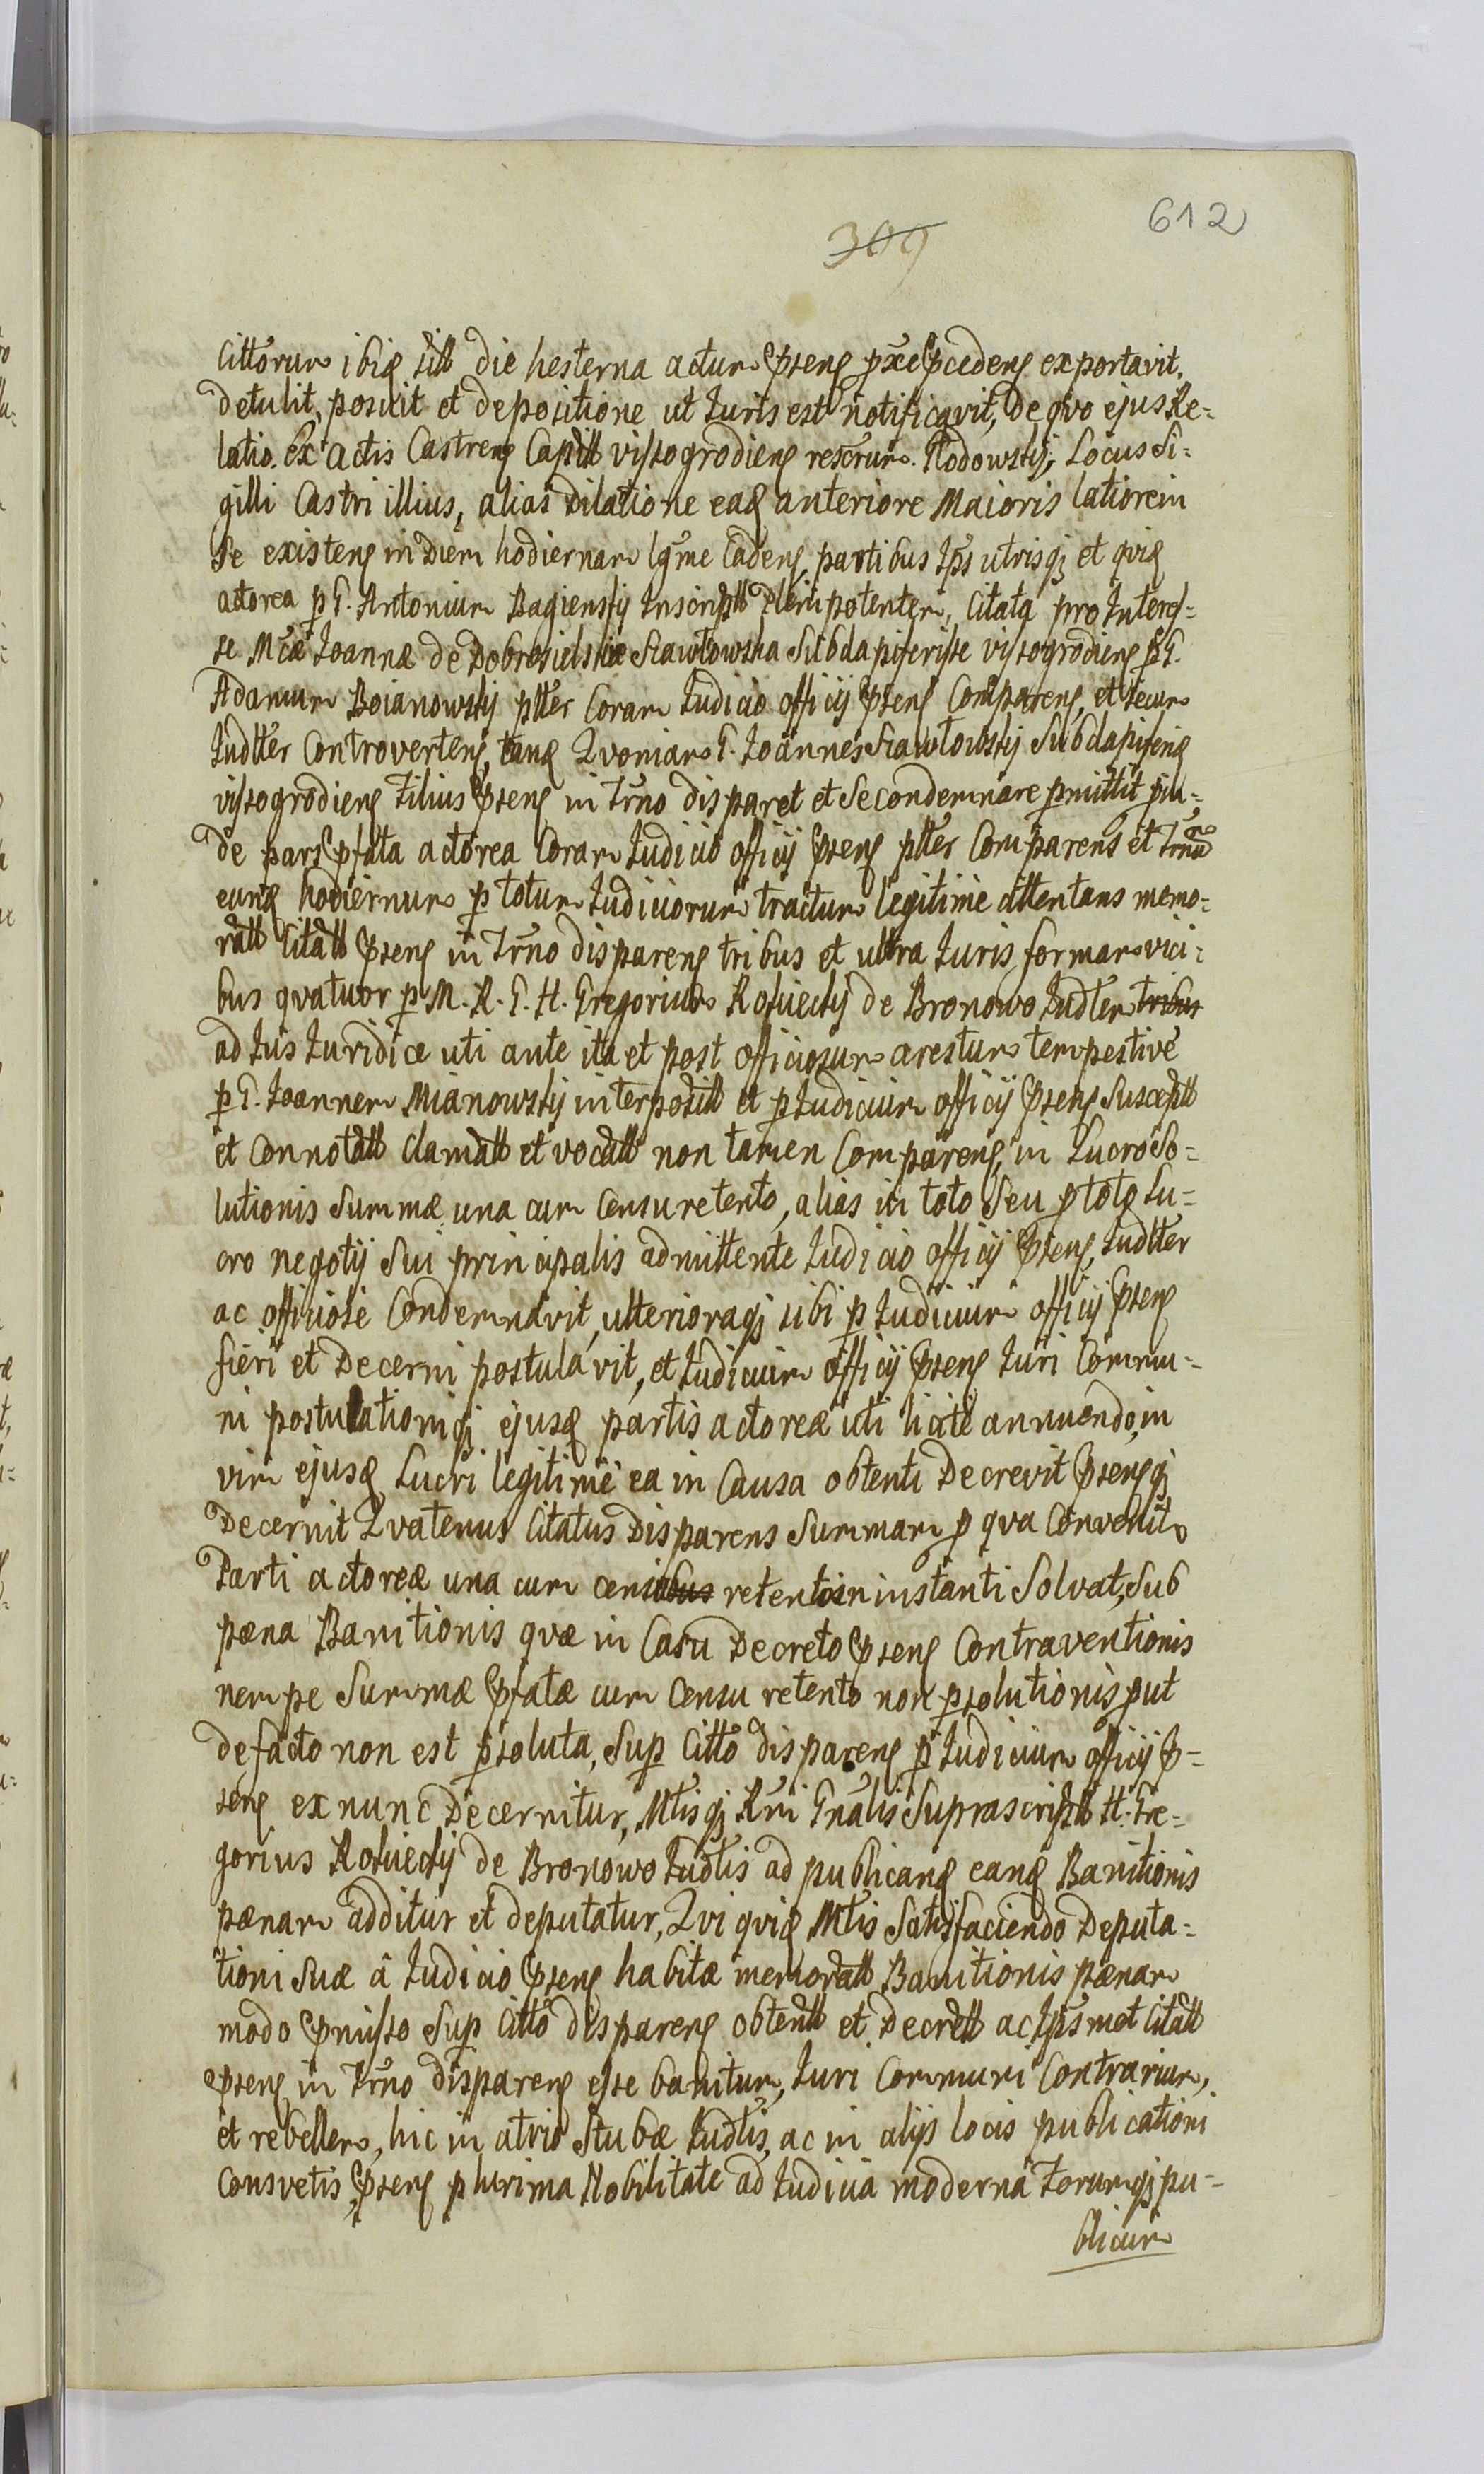 612
309
Cittorum ibiq sitt die hesterna actum pseng pxe pcedeng exportavit,
detulit, posuit et depositione ut Iuris est notificavit, de qvo ejus Re=
latio. ex actis Castreng Capitt vissogrodieng rescrum. Kłodowskij, Locus Si=
gilli Castri illius, alias Dilatione eaq anteriore Maioris latiorein
Se existeng in Diem hodiernam lgme Cadeng, partibus Ips utrisqz et qviq
actorea p G. Antonium Bagienskij Inscriptt Plenipotentem, Citata pro Interes=
se Mcæ Ioannæ de Dobrosielskie Szawłowska Subdapiferisse vissogrodieng p G.
Adamum Boianowskij ptter Coram Iudicio officij pseng Compareng, et secum
Iudtter Controverteng, tanq Qvoniam G. Ioannes Szawłowskij Subdapiferiq
vissogrodieng Filius pseng in Trno disparet et se condemnare pmittit pin=
de pars pfata actorea Coram Iudicio officij pseng ptter Comparens et Trno
eunq hodiernum p totum Iudiciorum tractum legitime attentans memo=
ratt Citatt pseng in Trno dispareng tribus et ultra Iuris formam vici=
bus qvatuor p M. R. G. H. Gregorium Kosiuckij de Bronowo Iudtem tribus
ad Ius Iuridice uti ante ita et post officiosum arestum tempestive
p G. Ioannem Mianowskij interpositt et p Iudicium officij pseng susceptt
et Connotatt clamatt et vocatt non tamen Compareng, in Lucro So=
lutionis Summæ una cum Censu retento, alias in toto Seu p toto Lu=
cro negotij Sui principalis admittente Iudicio officij pseng Iudtter
ac officiose Condemnavit, ulterioraqz sibi p Iudicium officij pseng
fieri et Decerni postulavit, et Iudicium officij pseng Iuri Commu=
ni postulationiqz ejusq partis actoreæ uti licite annuendo, in
vim ejusq Lucri legitime ea in Causa obtenti Decrevit psengqz
Decernit Qvatenus Citatus Disparens Summam p qva Convenit
Parti actoreæ una cum censibus retento in instanti Solvat, Sub
pæna Banitionis qvæ in Casu Decreto pseng Contraventionis
nempe Summæ pfatæ cum Censu retento non psolutionis put
de facto non est psoluta, Sup Citto dispareng p Iudicium officij p=
seng ex nunc Decernitur, Mtisqz Rni Gnalis Suprascriptt H. Gre=
gorius Kosiuckij de Bronowo Iudtis ad publicang eang Banitionis
pænam additur et deputatur, Qvi qviq Mtis Satisfaciendo Deputa=
tioni Suæ â Iudicio pseng habitæ memoratt Banitionis pænam
modo pmisso Sup Citto dispareng obtentt et Decrett ac Ipsmet Citatt
pseng in Trno dispareng esse banitum, Iuri Communi Contrarium,
et rebellem, hic in atrio Stubæ Iudtis, ac in alijs locis publicationi
Consvetis, pseng plurima Nobilitate ad Iudicia moderna Forumqz pu=
blicum